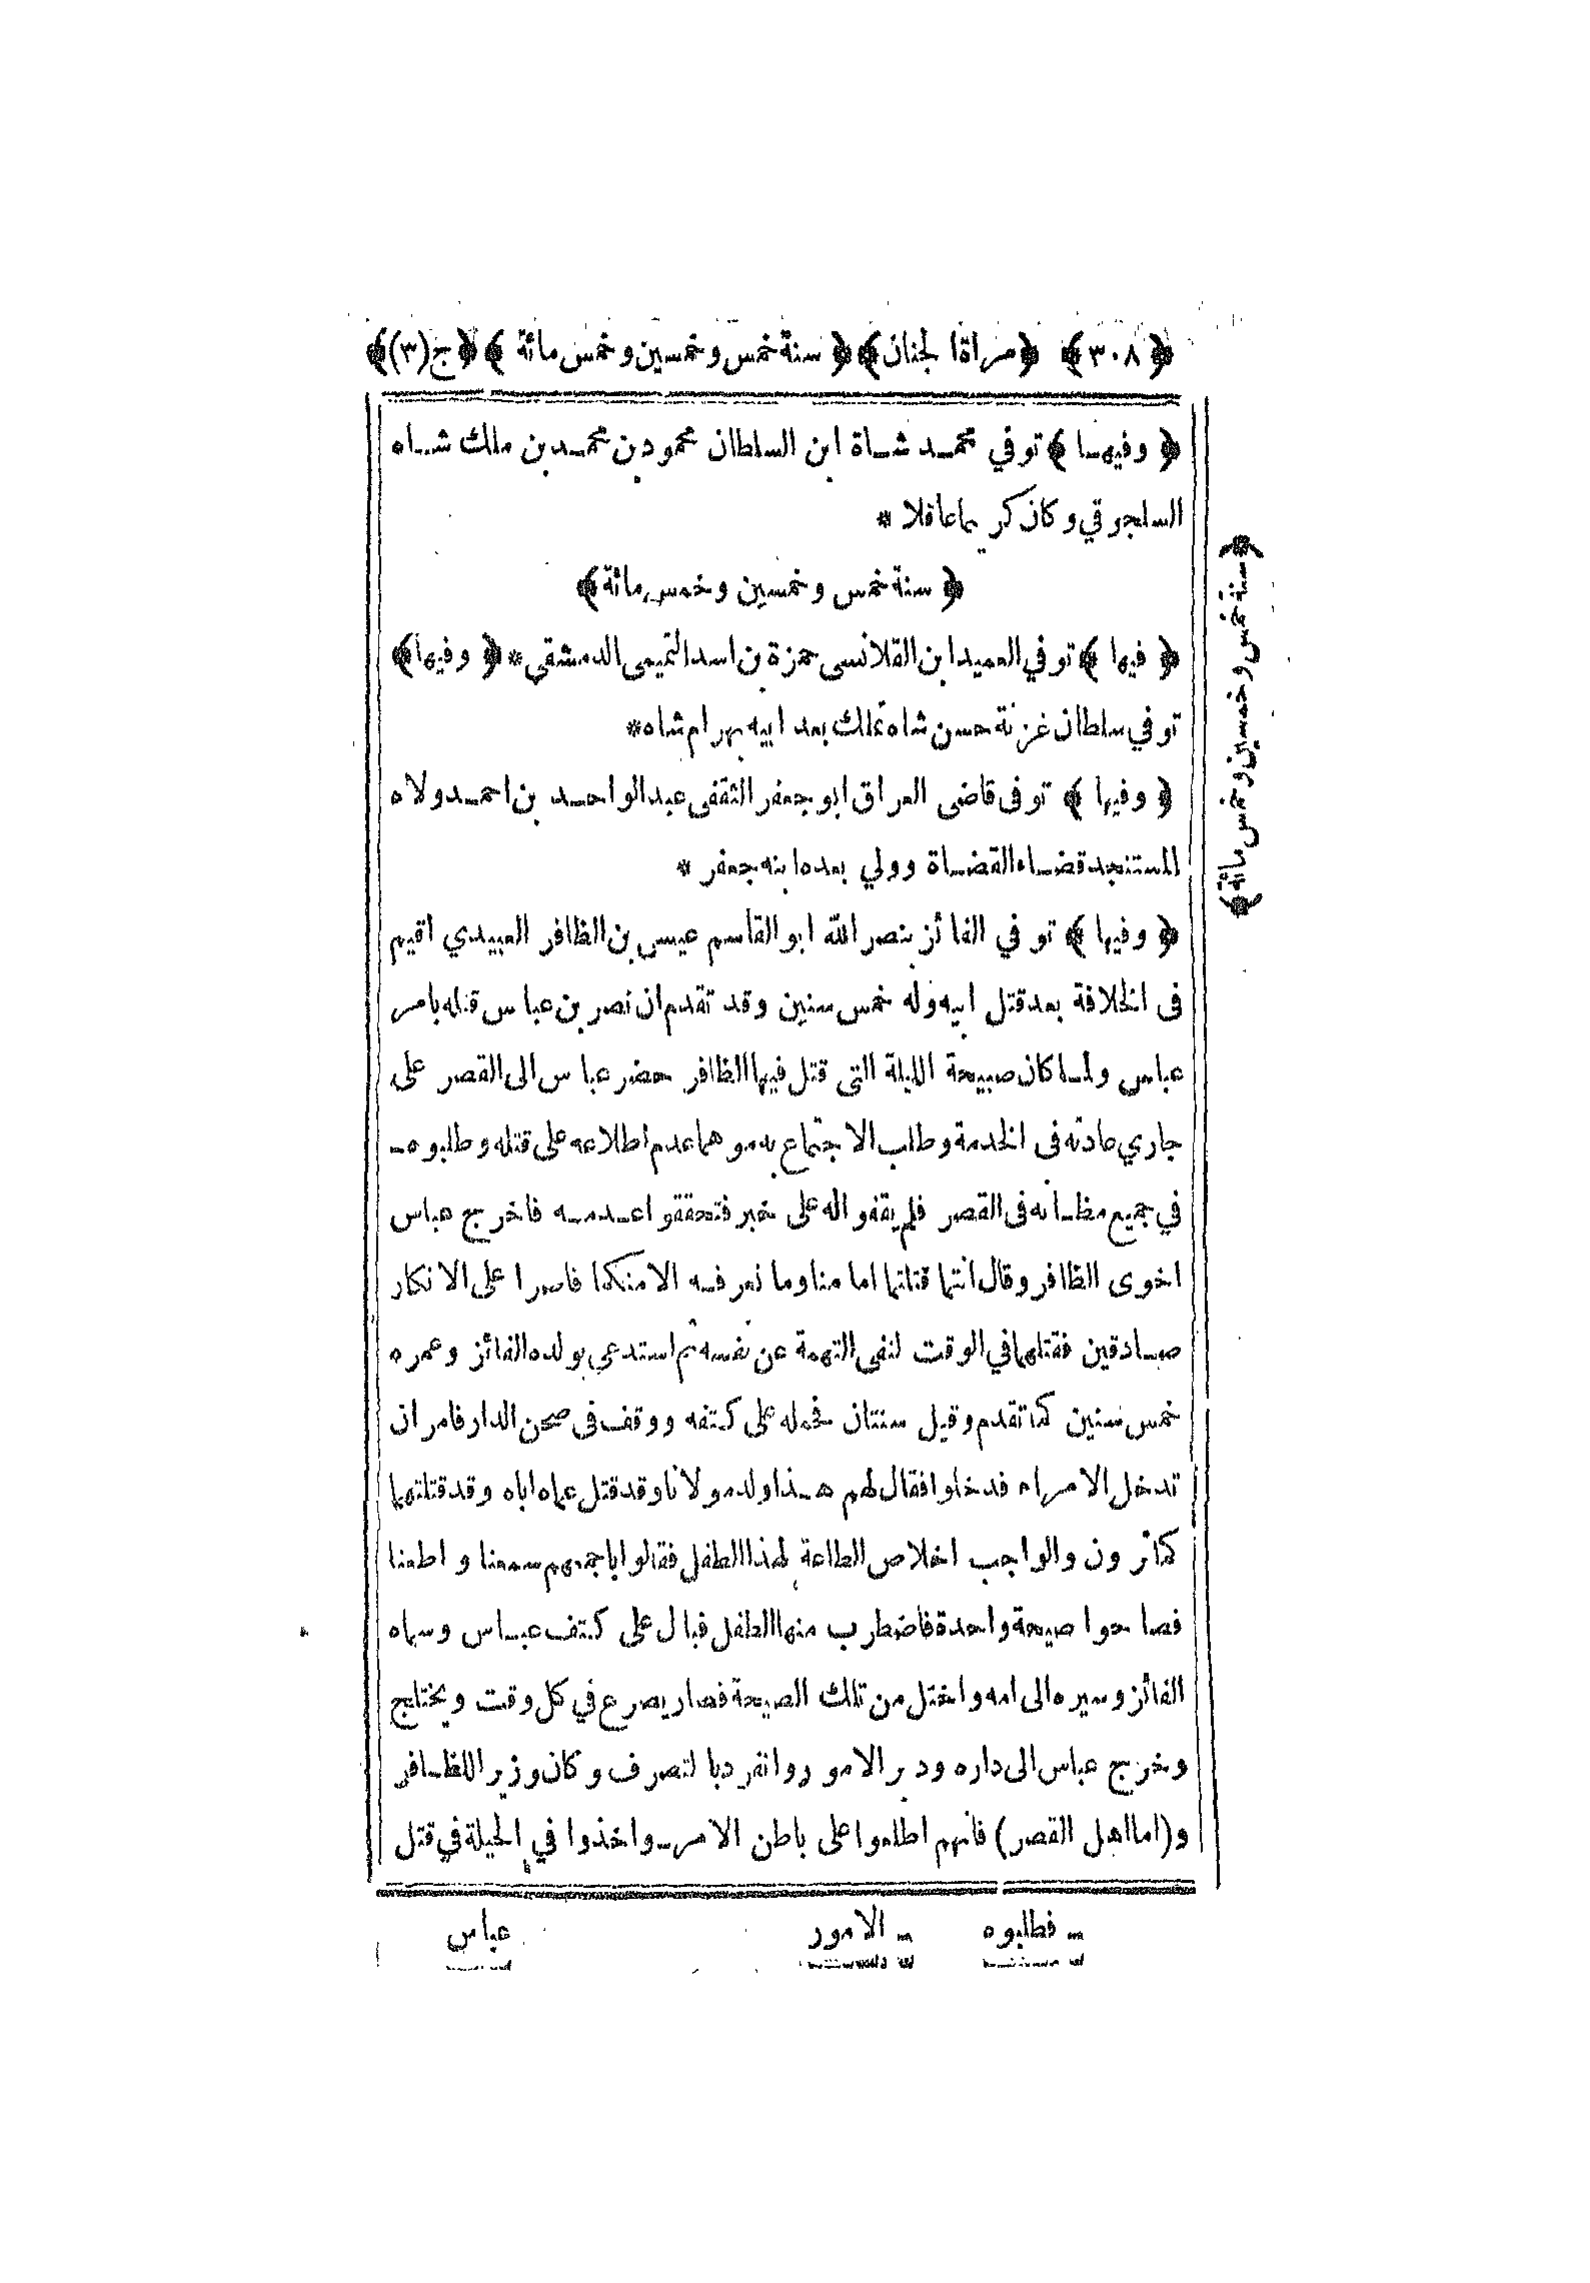 ﴿٣٠٨﴾ ﴿مراة الجنان﴾ ﴿سنة خمس وخمسين وخمس مائة﴾ ﴿ج(٣)﴾
﴿وفيها﴾ توفي محمد شاة ابن السلطان محمود بن محمد بن ملك شاه
السلجوقي وكان كريما عاقلا *
﴿سنة خمس وخمسين وخمس مائة﴾
﴿فيها﴾ توفي العميد ابن القلانسى حمزة بن اسد التميمى الدمشقى * ﴿وفيها﴾
توفي سلطان غزنة حسن شاه تملك بعد ابيه بهرام شاه *
﴿وفيها﴾ توفى قاضى العراق ابو جعفر الثقفى عبد الواحد بن احمد ولاه
المستنجد قضاء القضاة وولي بعده ابنه جعفر *
﴿وفيها﴾ توفي الفائز بنصر الله ابو القاسم عيسى بن الظافر العبيدي اقيم
فى الخلافة بعد قتل ابيه وله خمس سنين وقد تقدم ان نصر بن عباس قتله بامر
عباس ولما كان صبيحة الليلة التى قتل فيها الظافر حضر عباس الى القصر على
جاري عادته فى الخدمة وطلب الاجتماع به موهما عدم اطلاعه على قتله وطلبوه ـ
في جميع مظانه فى القصر فلم يقفوا له على خبر فتحققوا عدمه فاخرج عباس
اخوى الظافر وقال انتما قتلتما اما منا وما نعرفه الا منكما فاصرا على الانكار
صادقين فقتلهما في الوقت لنفى التهمة عن نفسه ثم استدعي بولده الفائز وعمره
خمس سنين كما تقدم وقيل سنتان فحمله على كتفه ووقف فى صحن الدار فامر ان
تدخل الامراء فدخلوا فقال لهم هذا ولد مولانا وقد قتل عماه اباه وقد قتلتهما
كما ترون والواجب اخلاص الطاعة لهذا الطفل فقالوا باجمعهم سمعنا واطعنا
فصاحوا صيحة واحدة فاضطرب منها الطفل فبال على كتف عباس وسماه
الفائز وسيره الى امه واختل من تلك الصيحة فصار يصرع في كل وقت ويختلج
وخرج عباس الى داره ودبر الامور وانفرد بالتصرف وكان وزير اللظافر
و(اما اهل القصر) فانهم اطلعوا على باطن الامر ـ واخذوا في الحيلة في قتل
ـ فطلبوه ـ الامور عباس
﴿سنة خمس وخمسين وخمس مائة﴾